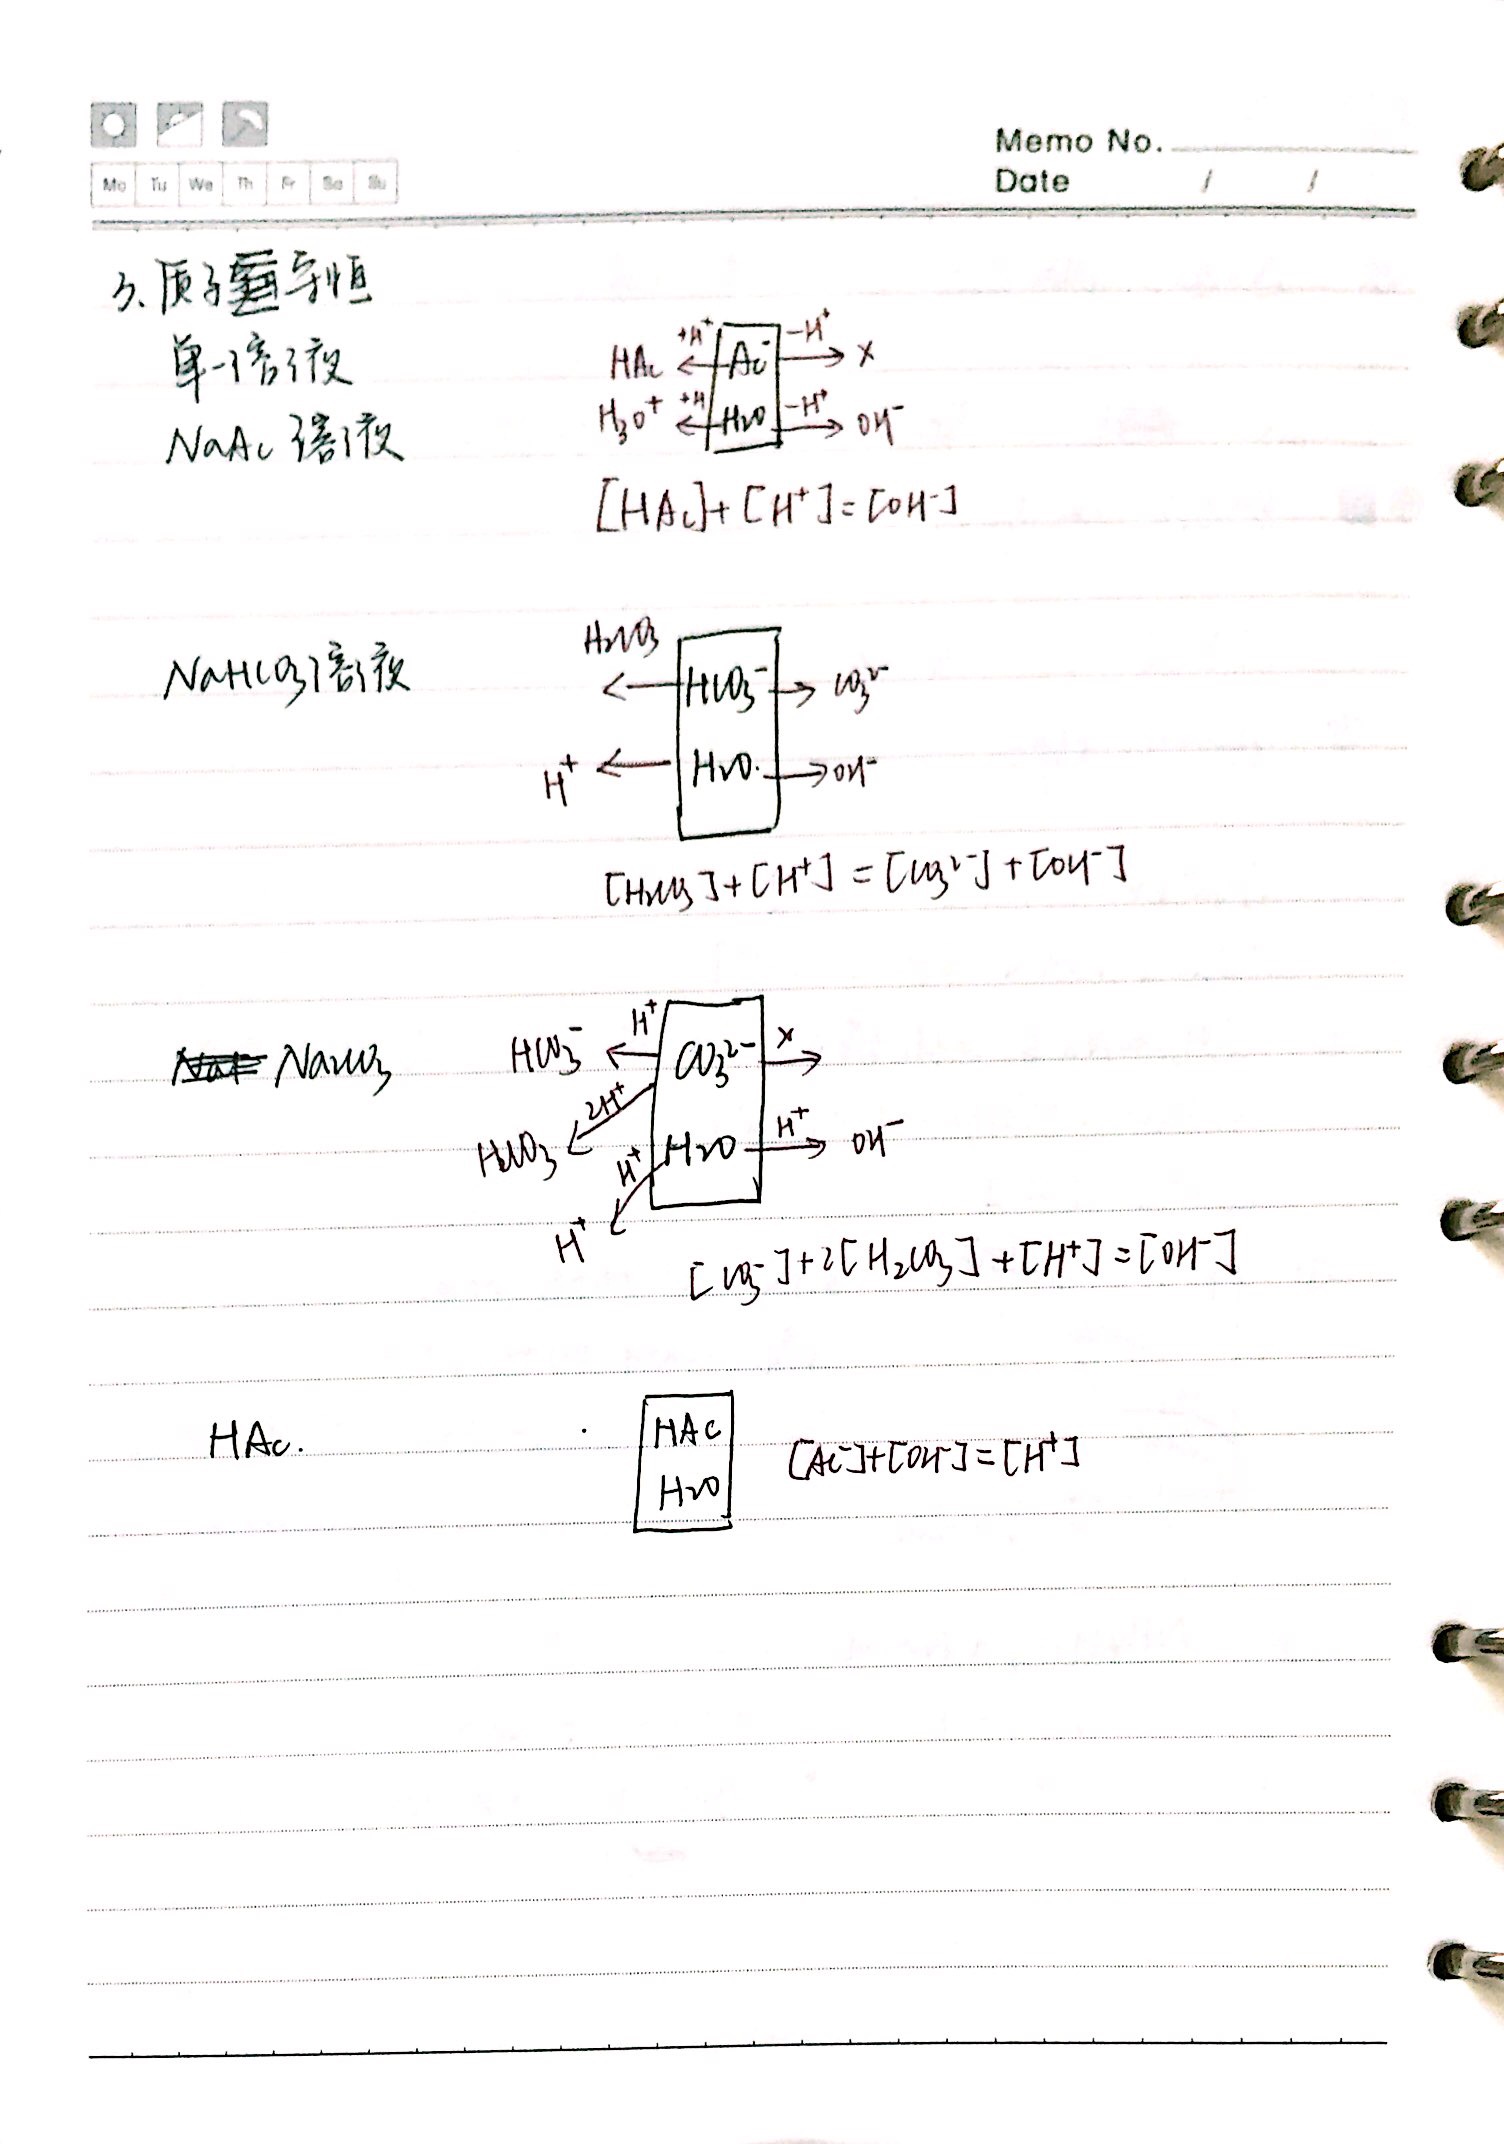 Mo Tu We Th Fr Sa Su
Memo No.
Date / /
3.质子守恒
单一溶液
NaAc溶液
HAc +H⁺ Ac⁻ -H⁺ ×
H₃O⁺ +H H₂O -H⁺ OH⁻
[HAc]+[H⁺]=[OH⁻]
NaHCO₃溶液
H₂CO₃ HCO₃⁻ CO₃²⁻
H⁺ H₂O. OH⁻
[H₂CO₃]+[H⁺]=[CO₃²⁻]+[OH⁻]
Na₂CO₃
HCO₃⁻ H⁺ CO₃²⁻ ×
H₂CO₃ 2H⁺ H₂O H⁺ OH⁻
H⁺ H⁺
[CO₃⁻]+2[H₂CO₃]+[H⁺]=[OH⁻]
HAc.
HAc
H₂O
[Ac⁻]+[OH⁻]=[H⁺]